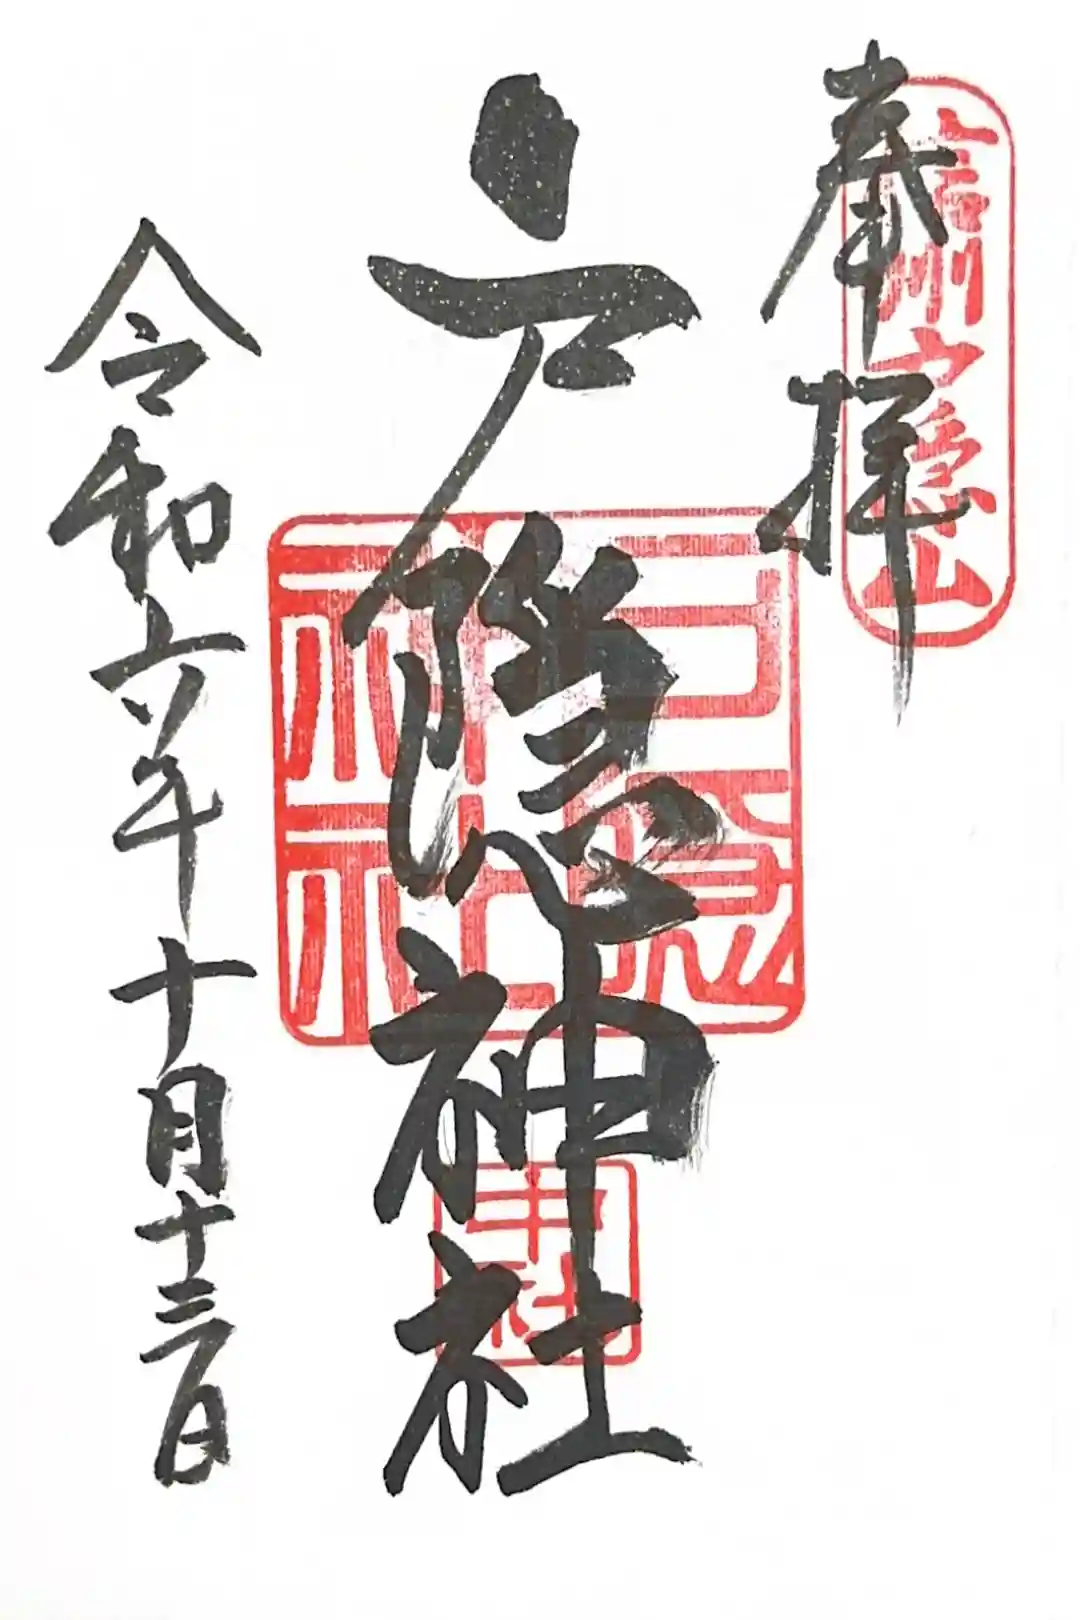 奉拝
信州戸隠山
戸隠神社
戸隠
神社
中社
令和六年十月十三日